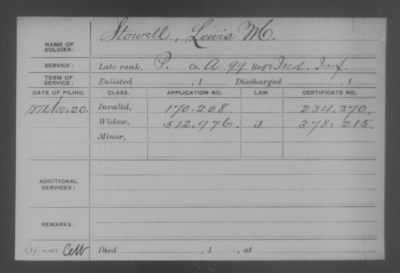 NAME OF SOLDIER: Stowell, Lewis M.
SERVICE: Late rank, P. Co. A 99 Reg't Ind. Inf.
TERM OF SERVICE: Enlisted , 1 Discharged , 1
DATE OF FILING. CLASS. APPLICATION NO. LAW. CERTIFICATE NO.
20. Invalid, 170.208 234.370.
Widow, 512.976. 378.215.
Minor,
ADDITIONAL SERVICES:
REMARKS:
Died , 1 , at